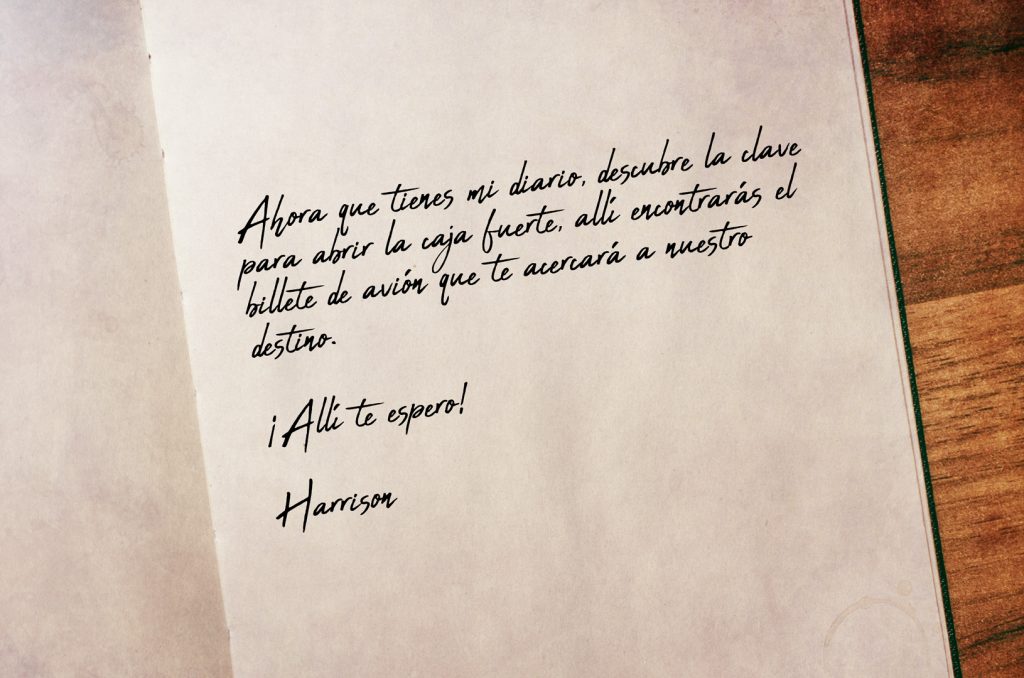 Ahora que tienes mi diario, descubre la clave
para abrir la caja fuerte, allí encontrarás el
billete de avión que te acercará a nuestro
destino.
¡Allí te espero!
Harrison